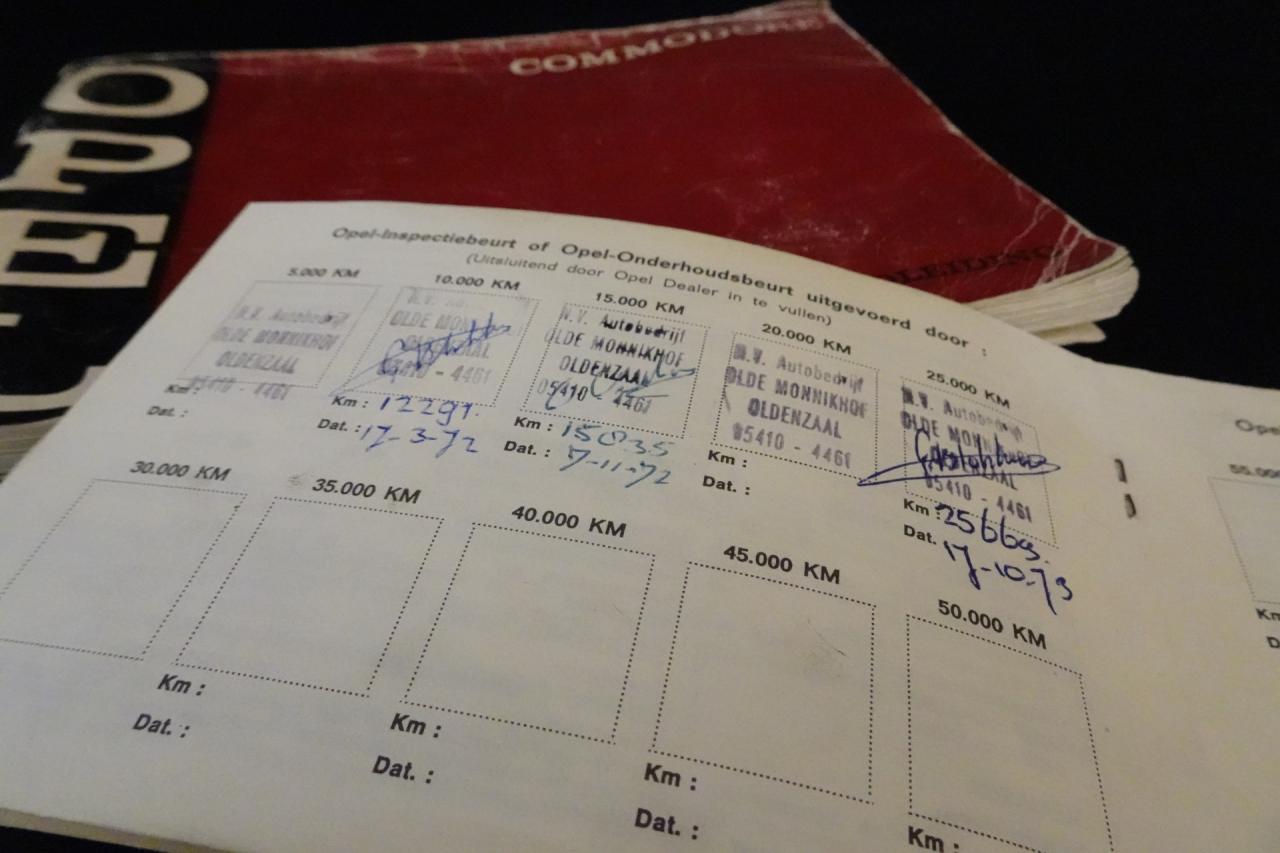 OPEL
COMMODORE
LEIDING
Opel-Inspectiebeurt of Opel-Onderhoudsbeurt uitgevoerd door :
(Uitsluitend door Opel Dealer in te vullen)
5.000 KM
N.V. Autobedrijf
OLDE MONNIKHOF
OLDENZAAL
05410 - 4461
Km :
Dat. :
10.000 KM
N.V.
OLDE MONNIKHOF
OLDENZAAL
05410 - 4461
Km : 12291
Dat. : 17-3-72
15.000 KM
N.V. Autobedrijf
OLDE MONNIKHOF
OLDENZAAL
05410 4461
Km : 15835
Dat. : 7-11-72
20.000 KM
N.V. Autobedrijf
OLDE MONNIKHOF
OLDENZAAL
05410 - 4461
Km :
Dat. :
25.000 KM
N.V. Autobedrijf
OLDE MONNIKHOF
OLDENZAAL
05410 - 4461
Km :
Dat. 17-10-73
30.000 KM
35.000 KM
Km :
Dat. :
40.000 KM
Km :
Dat. :
45.000 KM
Km :
Dat. :
50.000 KM
Km :
Opel
55.000
Km
D